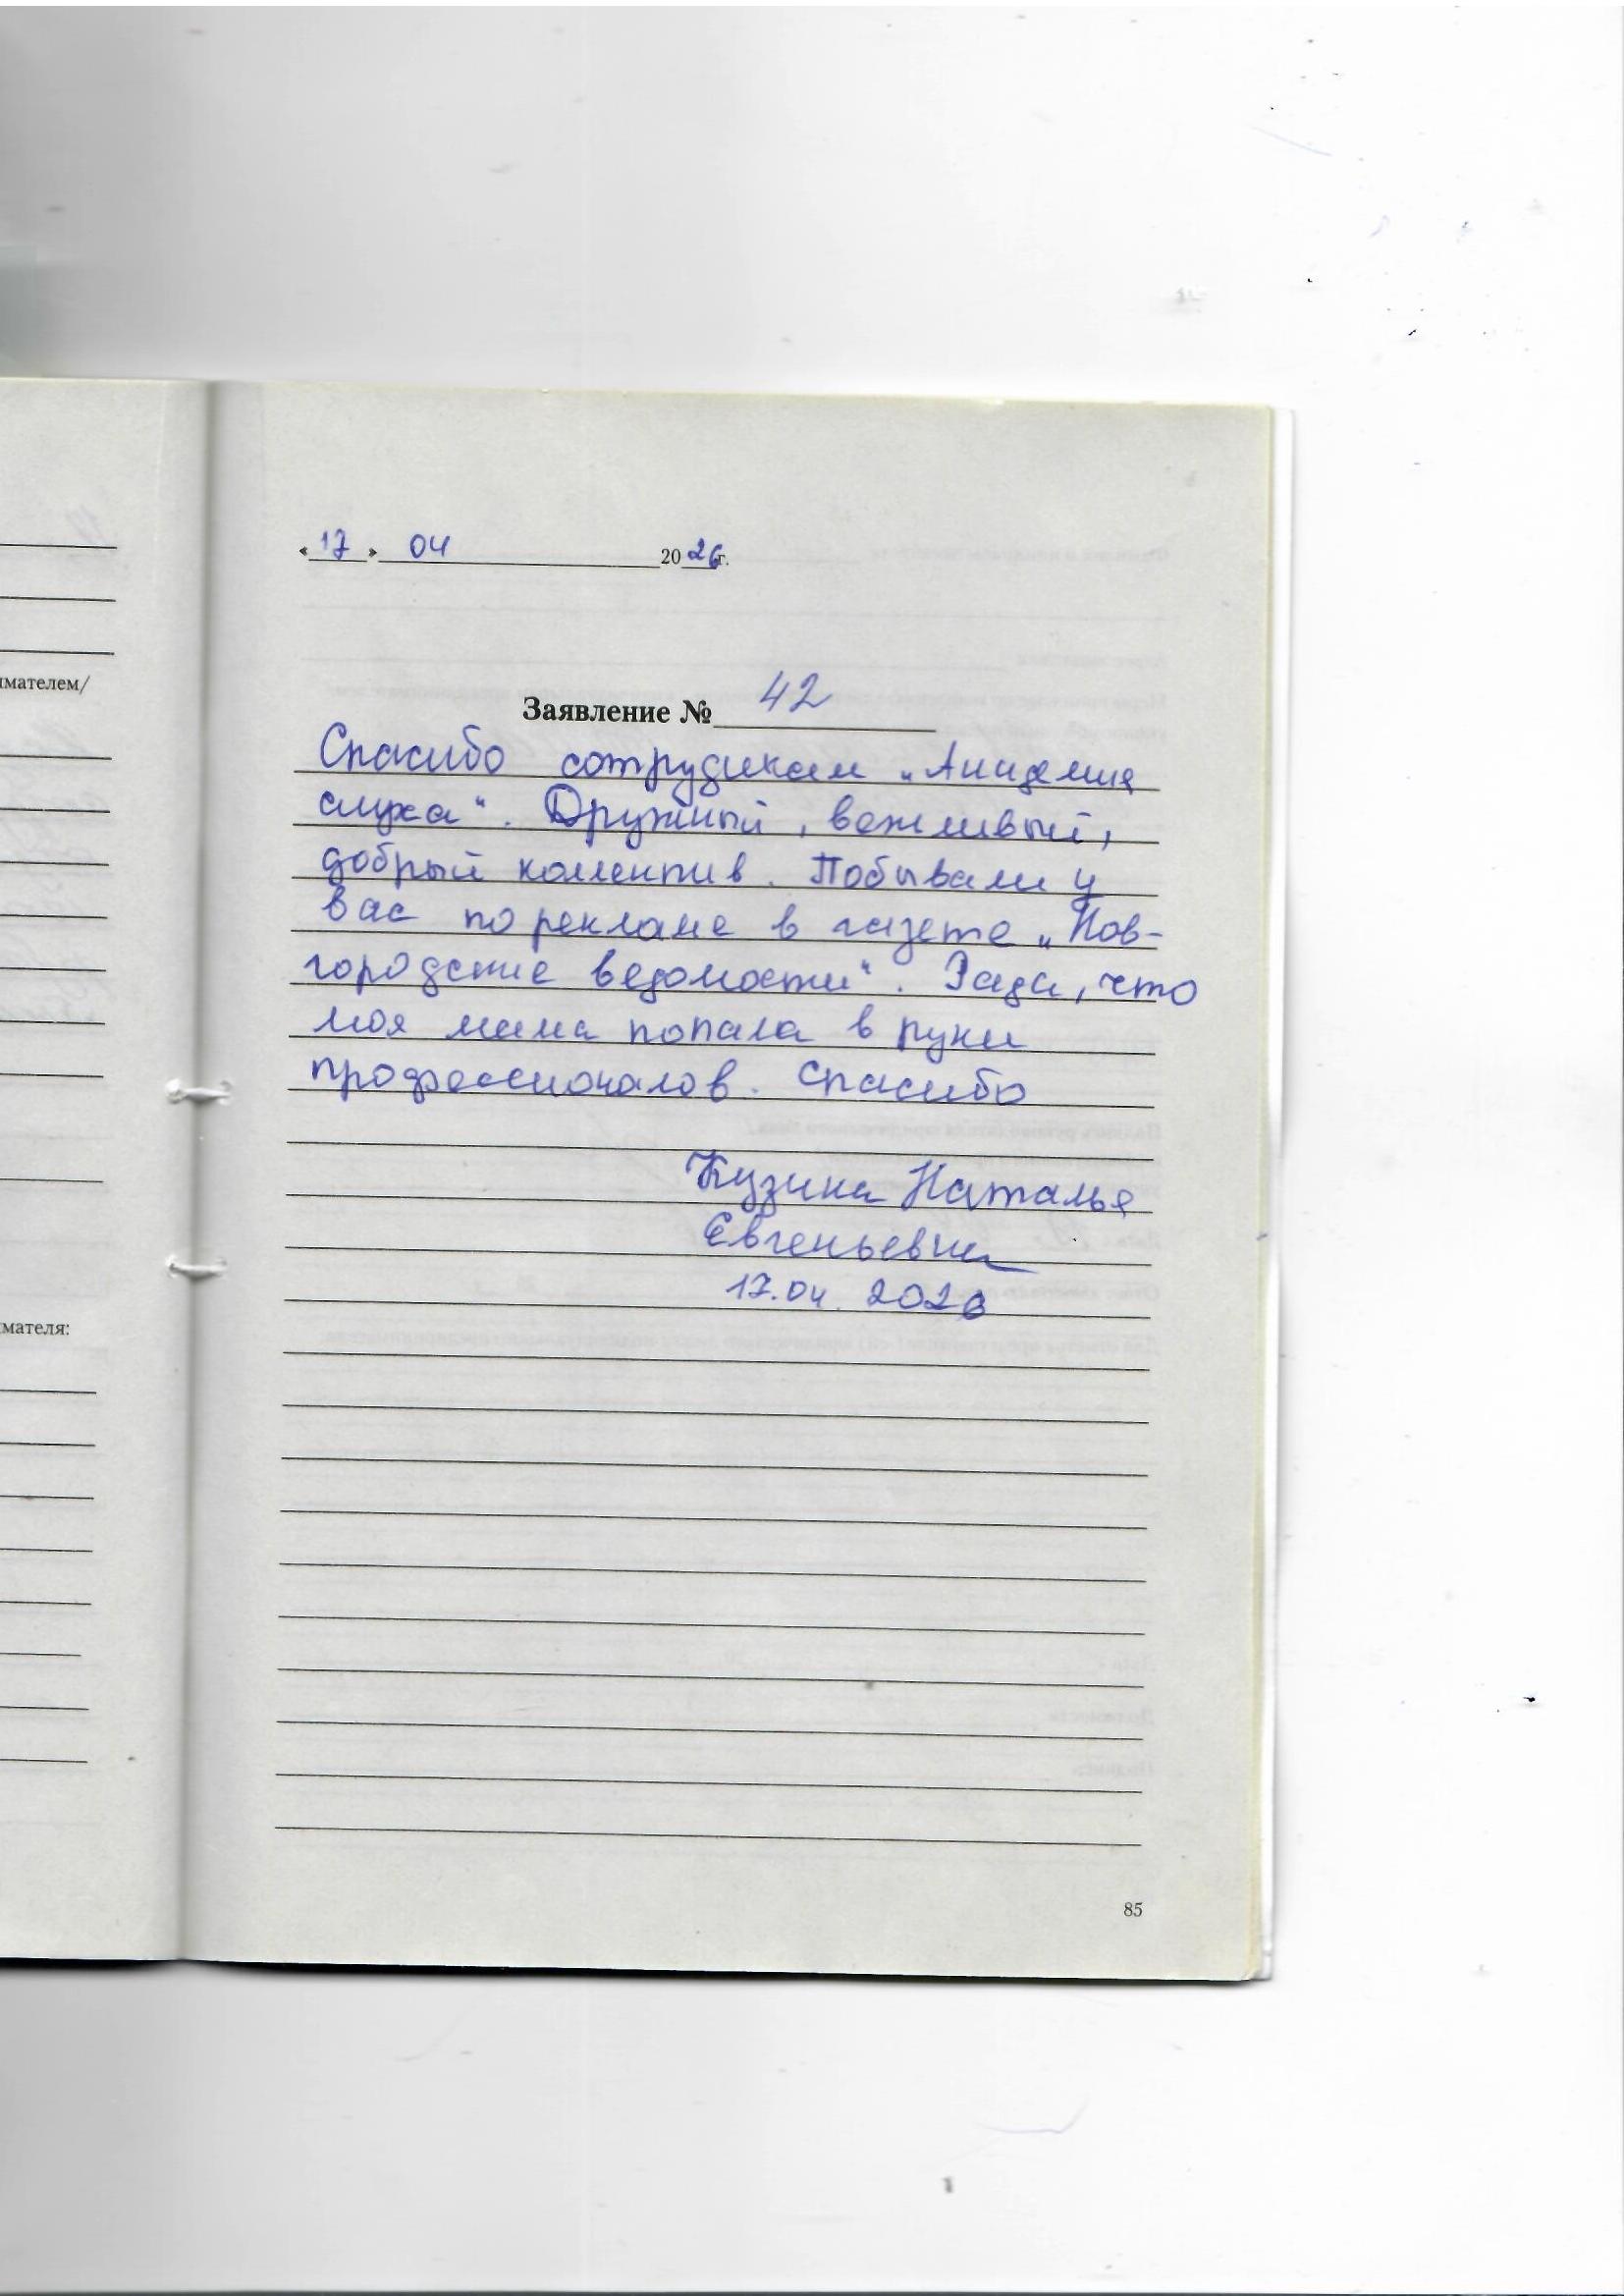 имателем/
мателя:
«17» 04 2026г.
Заявление № 42
Спасибо сотрудикам „Академия
слуха“. Дружный, вежливый,
добрый коллектив. Побывали у
вас по рекламе в газете „Нов-
городские ведомости“. Рада, что
моя мама попала в руки
профессионалов. Спасибо
Кузина Наталья
Евгеньевна
17.04.2026
85